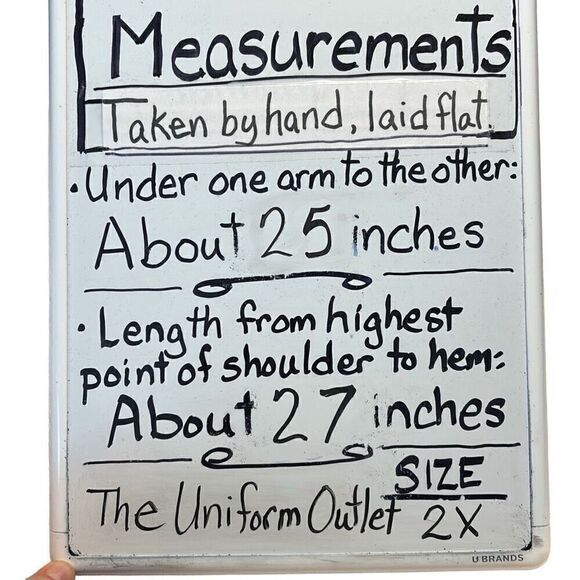 Measurements
Taken by hand, laid flat.
• Under one arm to the other:
About 25 inches
• Length from highest
point of shoulder to hem:
About 27 inches
SIZE
The Uniform Outlet 2X
U BRANDS